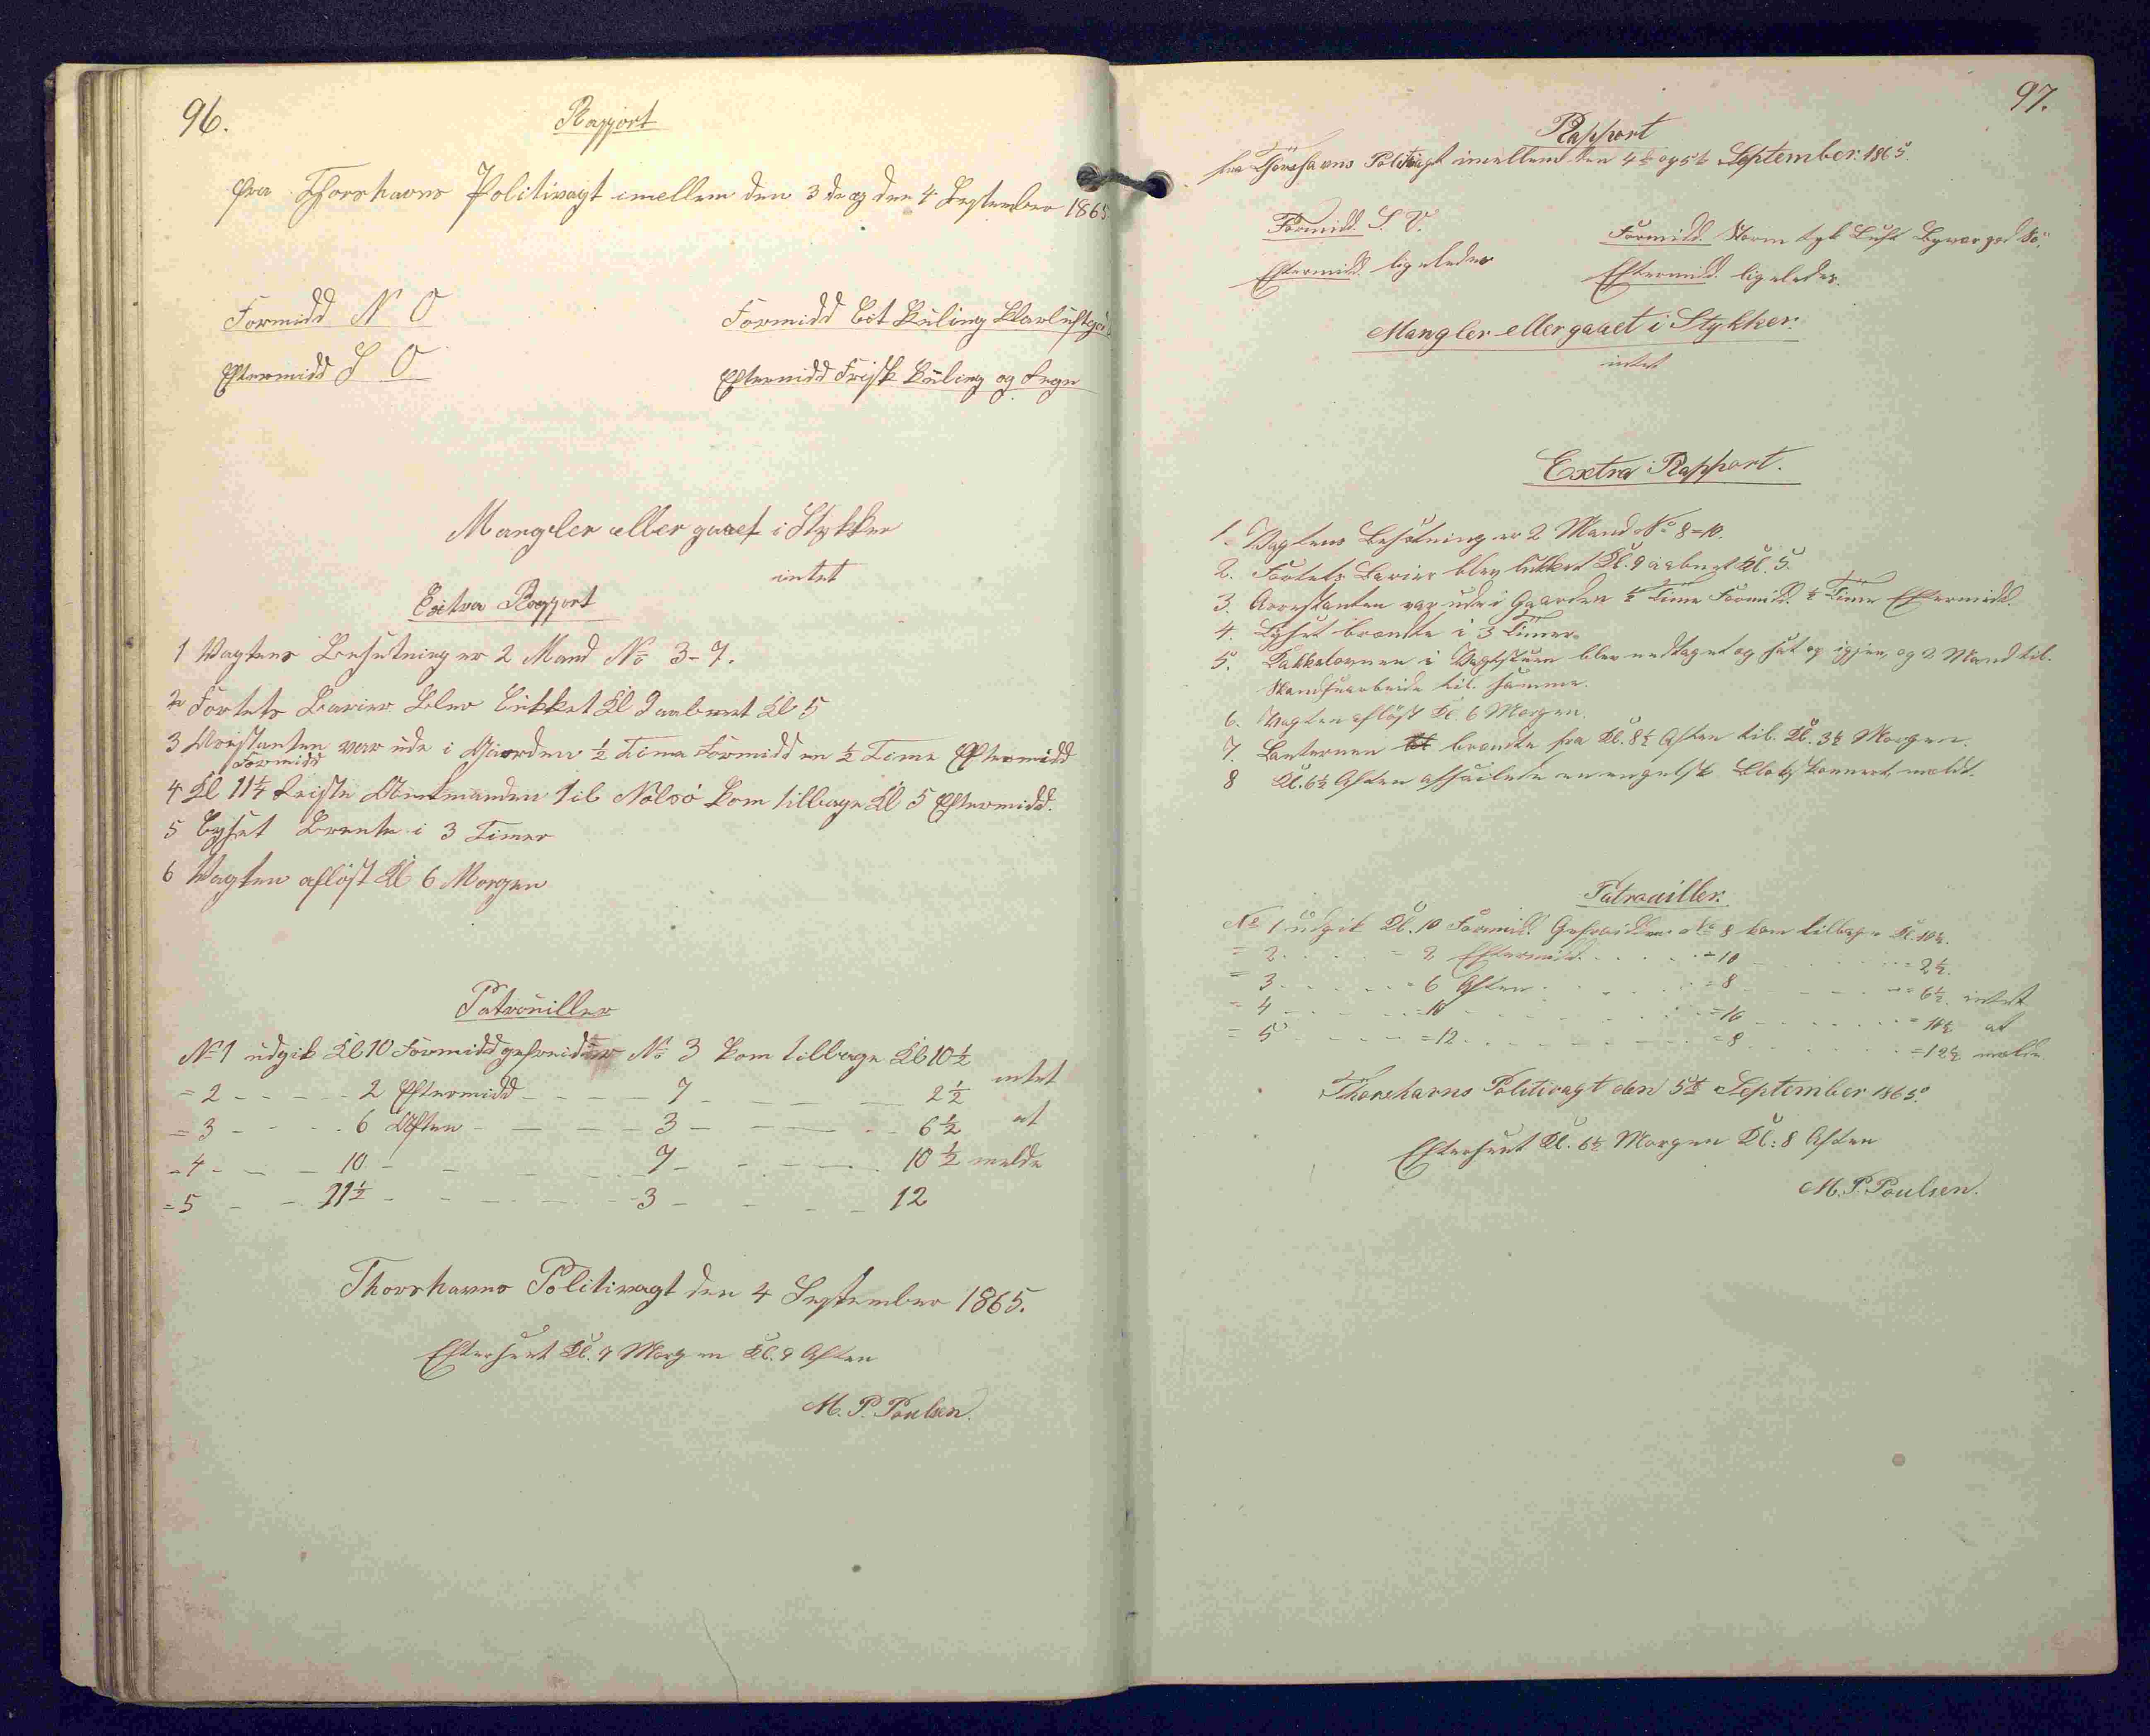 96.
Rapport
fra Thorshavns Politivagt imellem den 3de og den 4 September 1865
Formidd N O
Eftermidd S O
Formidd Lit Kuling Klarluft
Eftermidd Frisk Kuling og Regn
Mangler eller gaaet i Stykker
intet
Extra Rapport
1 Vagtens Besetning er 2 Mand No 3-7.
2 Fortets Barier Blev Lukket Kl 9 aabnet Kl 5
3 Arestanten var ude i Gaarden ½ Time Formidd en ½ Time Eftermidd
Formidd
4 Kl 11½ Reiste Amtmanden til Nolsö kom tillbage Kl 5 Eftermidd.
5 Lyset Brente i 3 Timer
6 Vagten aflöst Kl 6 Morgen
Patrouiller
No 1 udgik Kl 10 Formidd gefreidder No 3 kom tilbage Kl 10½
= 2 - - - - - 2 Eftermidd - - - - - 7 - - - - 2½ intet
= 3 - - - - 6 Aften - - - - 3 - - - - 6½ at
- 4 - - - 10 - - - - - 7 - - - - - 10½ melde
= 5 - - - 11½ - - - - - 3 - - - - 12
Thorshavns Politivagt den 4 September 1865.
Efterseet Kl. 9 Morgen Kl. 9 Aften
M. P. Poulsen.
97.
Rapport
fra Thorshavns Politivagt imellem den 4de og 5te September 1865.
Formidd. S. V.
Eftermidd. ligeledes
Formidd. Storm tyk Luft
Eftermidd. ligeledes.
Mangler eller gaaet i Stykker.
intet
Extra Rapport.
1. Vagtens Besætning er 2 Mand No 8=10.
2. Fortets Barier blev lukket Kl. 9 aabnet Kl. 5.
3. Arrestanten var ude i Gaarden ½ Time Formidd. ½ Time Eftermidd.
4. Lyset brændte i 3 Timer.
5. Kakkelovnen i Vagtstuen blev nedtaget og sat op igjen, og 2 Mand til
Haandsarbeide til samme.
6. Vagten aflöst Kl. 6 Morgen.
7. Lanternen brændte fra Kl. 8½ Aften til Kl. 3½ Morgen.
8 Kl. 6½ Aften afseilede en engelsk
Patrouiller.
No 1 udgik Kl. 10 Formidd. Gefreidder No 8 kom tilbage Kl. 10½.
= 2. - - - = 2 Eftermidd. - - - = 10 - - - = 2½.
= 3. - - - = 6 Aften - - - = 8 - - - = 6½. intet
= 4 - - - = 10 - - - = 10 - - - = 10½ at
= 5 - - - = 12. - - - = 8 - - - = 12½ melde.
Thorshavns Politivagt den 5te September 1865.
Efterseet Kl. 6½ Morgen Kl: 8 Aften
M. P. Poulsen.